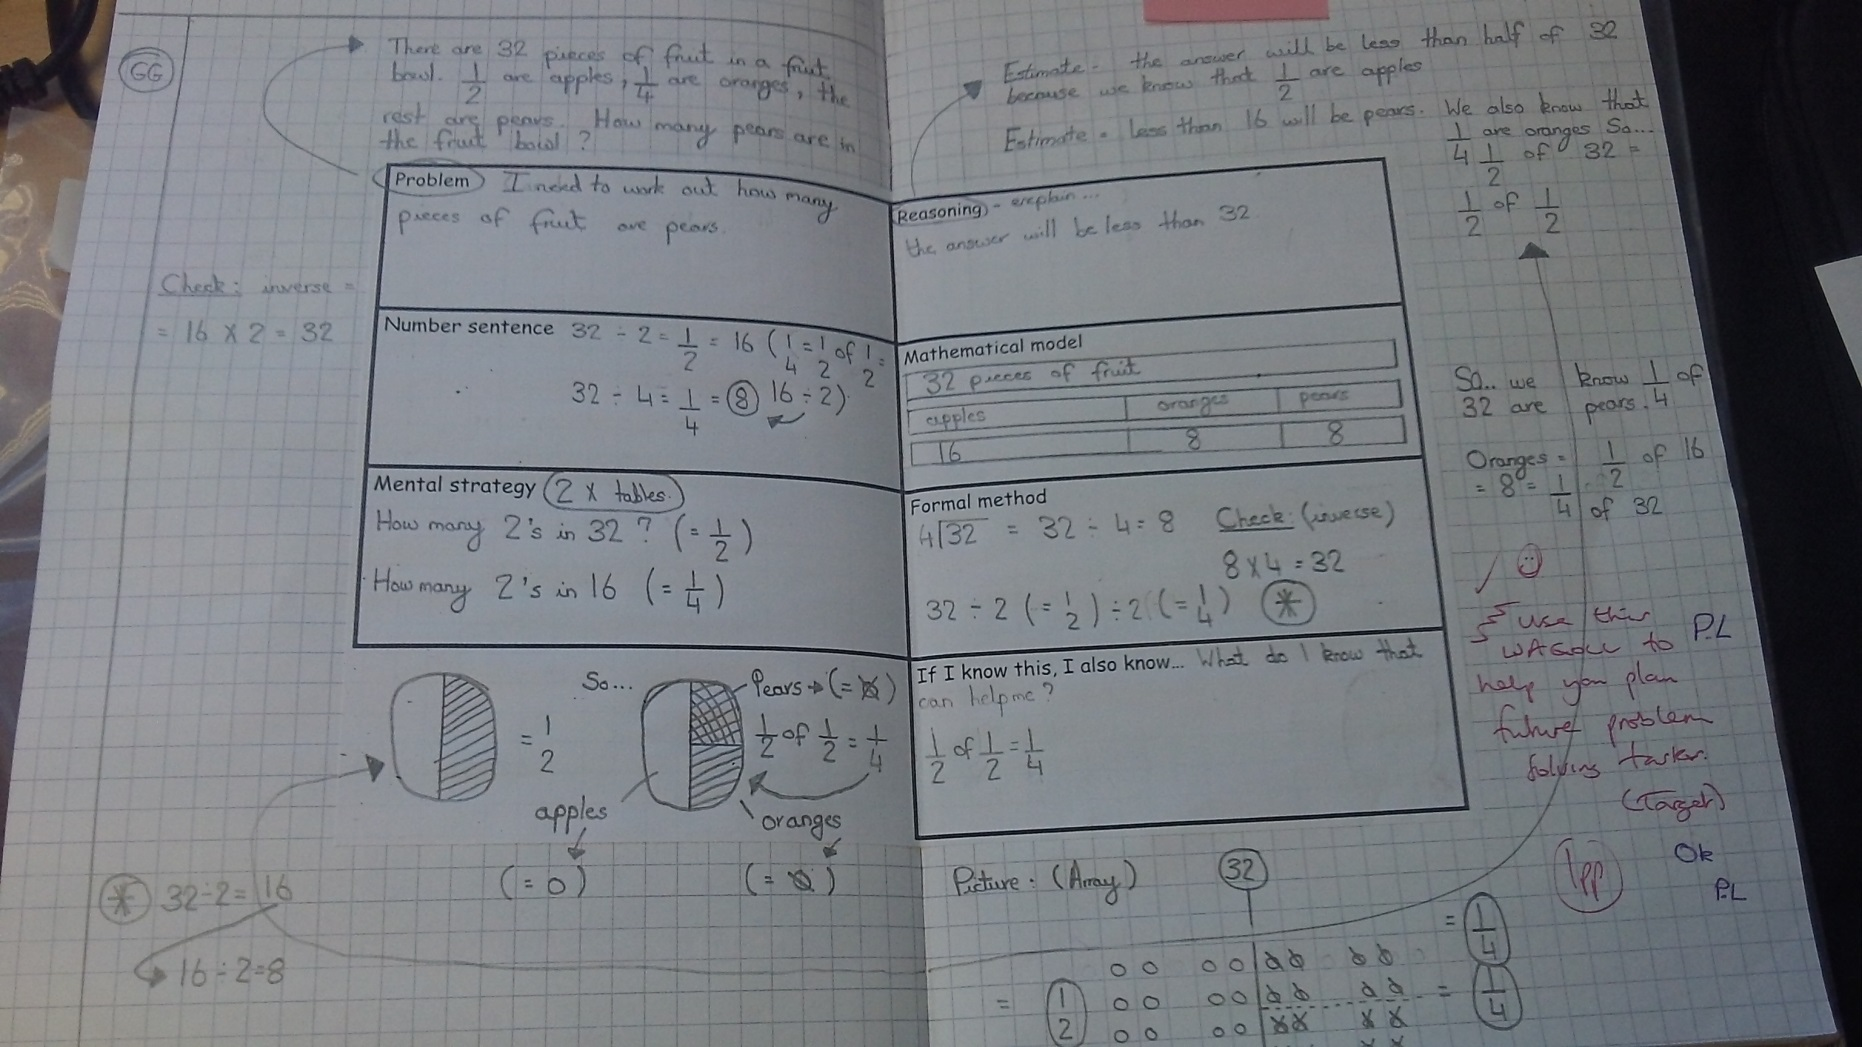 GG
There are 32 pieces of fruit in a fruit
bowl. 1/2 are apples, 1/4 are oranges, the
rest are pears. How many pears are in
the fruit bowl?
Problem I need to work out how many
pieces of fruit are pears.
Check: inverse =
= 16 x 2 = 32
Number sentence 32 ÷ 2 = 1/2 = 16 (1/4 = 1/2 of 1/2 =
32 ÷ 4 = 1/4 = 8 16 ÷ 2)
Mental strategy 2 x tables.
How many 2's in 32? (= 1/2)
How many 2's in 16 (= 1/4)
= 1/2
So...
Pears → (= x)
1/2 of 1/2 = 1/4
apples
oranges
(= o)
(= o)
* 32÷2=16
16÷2=8
Estimate - the answer will be less than half of 32
because we know that 1/2 are apples
Estimate = less than 16 will be pears. We also know that
1/4 are oranges So...
1/2 of 32 =
1/2 of 1/2
Reasoning - explain...
the answer will be less than 32
Mathematical model
32 pieces of fruit
apples oranges pears
16 8 8
So.. we know 1/4 of
32 are pears.
Oranges = 1/2 of 16
= 8 = 1/4 of 32
Formal method
4)32 = 32 ÷ 4 = 8 Check: (inverse)
8 x 4 = 32
32 ÷ 2 (= 1/2) ÷ 2 (= 1/4) *
If I know this, I also know... What do I know that
can help me?
1/2 of 1/2 = 1/4
use this
WAGOLL to P.L
help you plan
future problem
solving tasks.
(Target)
1pp
Ok
P.L
Picture: (Array) 32
= 1/4
= 1/2
= 1/4